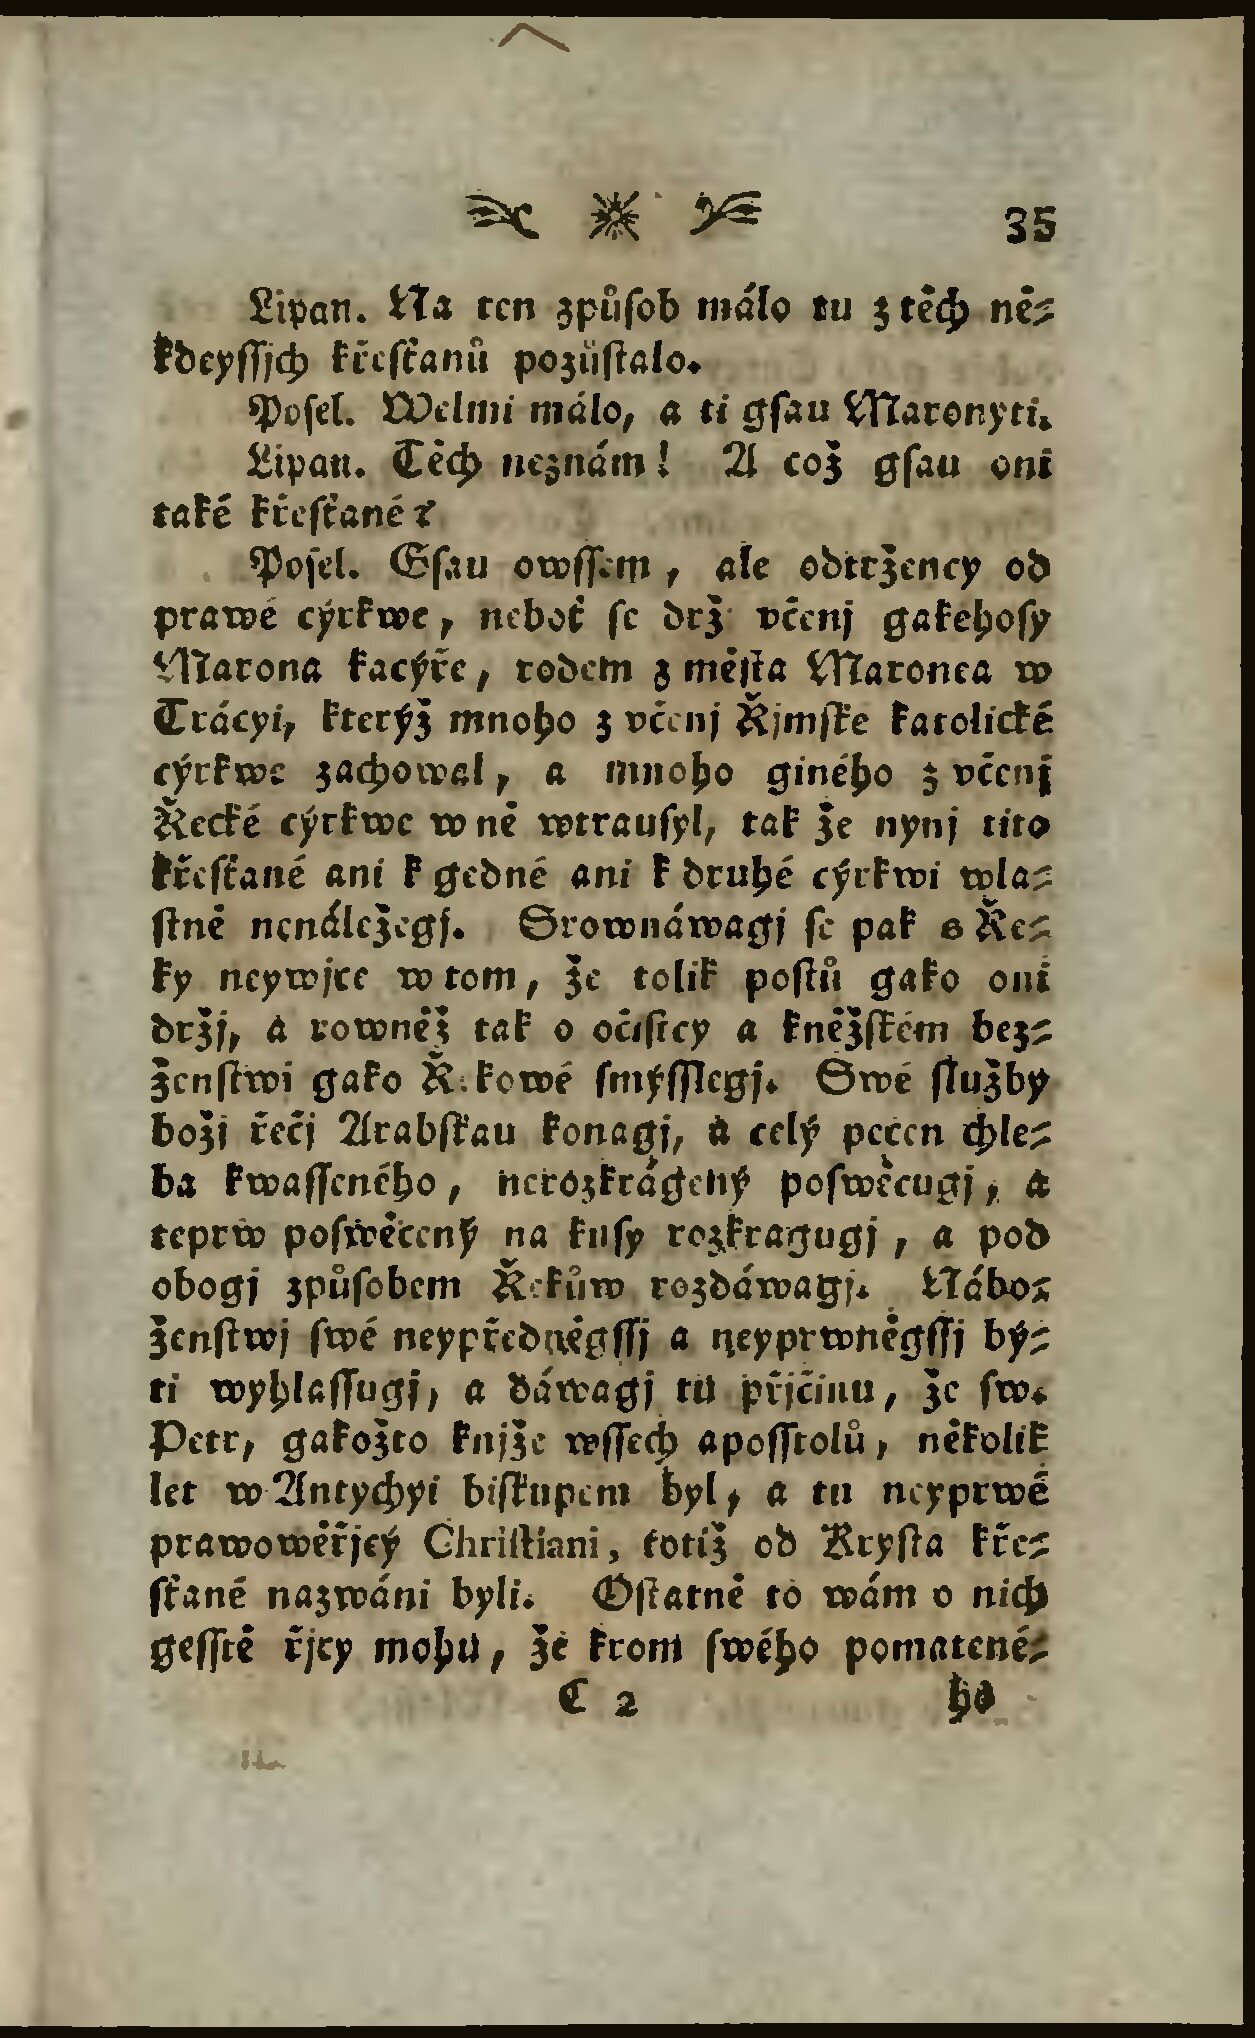 35
Lipan. Na ten způſob málo tu z těch ně-
kdeyſſjch křeſťanů pozůſtalo.
Poſel. Welmi málo, a ti gſau Maronyti.
Lipan. Těch neznám! A což gſau oni
také křeſťané?
Poſel. Gſau owſſem, ale odtržency od
prawé cýrkwe, neboť ſe drž včenj gakehoſy
Marona kacýře, rodem z měſta Maronea w
Trácyi, kterýž mnoho z včenj Řjmſké katolické
cýrkwe zachowal, a mnoho giného z včenj
Řecké cýrkwe w ně wtrauſyl, tak že nynj tito
křeſťané ani k gedné ani k druhé cýrkwi wla-
ſtně nenáležegj. Srownáwagj ſe pak s Ře-
ky neywjce w tom, že tolik poſtů gako oni
držj, a rowněž tak o očiſtcy a kněžſkém bez-
ženſtwi gako Řekowé ſmýſſlegj. Swé ſlužby
božj řečj Arabſkau konagj, a celý pecen chle-
ba kwaſſeného, nerozkrágený poſwěcugj, a
teprw poſwěcený na kuſy rozkragugj, a pod
obogj způſobem Řekůw rozdáwagj. Nábo-
ženſtwj ſwé neypředněgſſj a neyprwněgſſj bý-
ti wyhlaſſugj, a dáwagj tu přjčinu, že ſw.
Petr, gakožto knjže wſſech apoſſtolů, několik
let w Antychyi biſkupem byl, a tu neyprwé
prawowěřjcý Chriſtiani, totiž od Kryſta kře-
ſťané nazwáni byli. Oſtatně to wám o nich
geſſtě řjcy mohu, že krom ſwého pomatené-
C 2 ho